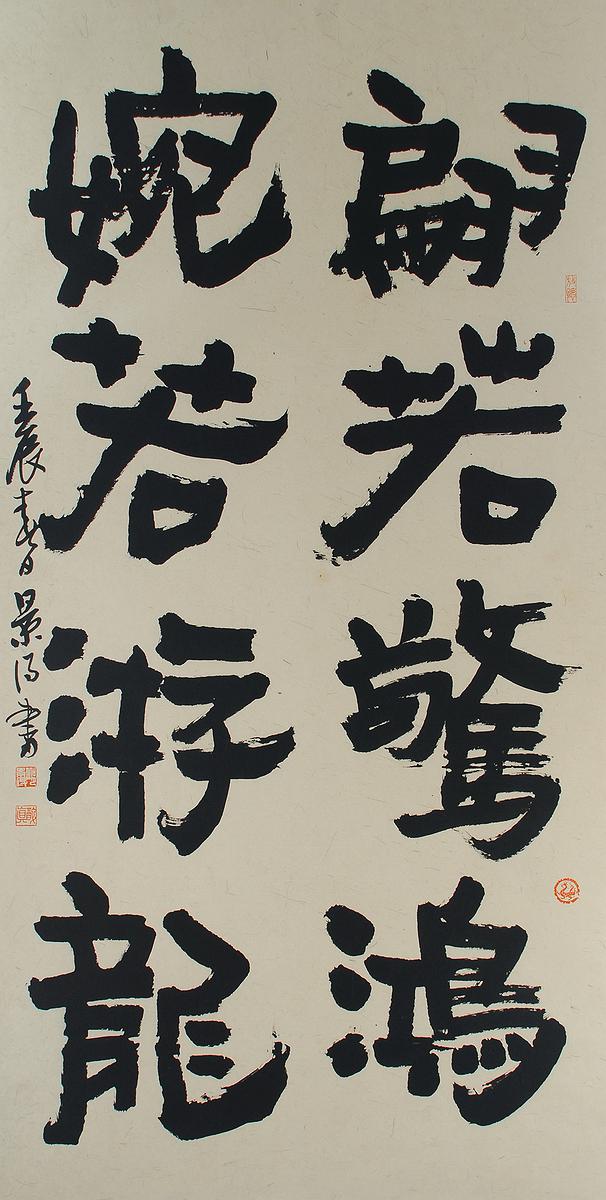 翩若驚鴻
婉若游龍
壬辰春日景
書